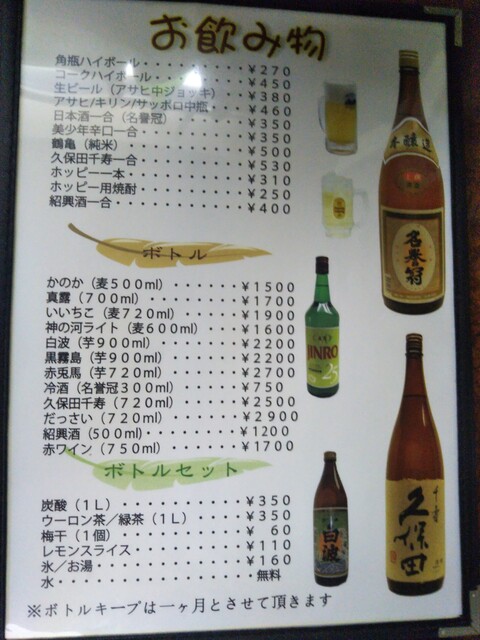 お飲み物
角瓶ハイボール・・・・・・・・・¥270
コークハイボール・・・・・・・・¥450
生ビール（アサヒ中ジョッキ）・・・¥380
アサヒ/キリン/サッポロ中瓶・・・¥460
日本酒一合（名誉冠）・・・・・・・¥350
美少年辛口一合・・・・・・・・・・¥350
鶴亀（純米）・・・・・・・・・・・¥500
久保田千寿一合・・・・・・・・・・¥530
ホッピー一本・・・・・・・・・・・¥310
ホッピー用焼酎・・・・・・・・・・¥250
紹興酒一合・・・・・・・・・・・・¥400
ボトル
かのか（麦500ml）・・・・・・・¥1500
真露（700ml）・・・・・・・・・¥1700
いいちこ（麦720ml）・・・・・・¥1900
神の河ライト（麦600ml）・・・・¥1600
白波（芋900ml）・・・・・・・・¥2200
黒霧島（芋900ml）・・・・・・・¥2200
赤兎馬（芋720ml）・・・・・・・¥2700
冷酒（名誉冠300ml）・・・・・・¥750
久保田千寿（720ml）・・・・・・¥2500
だっさい（720ml）・・・・・・・¥2900
紹興酒（500ml）・・・・・・・・¥1200
赤ワイン（750ml）・・・・・・・¥1700
ボトルセット
炭酸（1L）・・・・・・・・・・・¥350
ウーロン茶／緑茶（1L）・・・・・¥350
梅干（1個）・・・・・・・・・・・¥ 60
レモンスライス・・・・・・・・・・¥110
氷／お湯・・・・・・・・・・・・・¥160
水・・・・・・・・・・・・・・・・無料
※ボトルキープは一ヶ月とさせて頂きます
本醸造
名誉冠
JINRO
25
白波
千寿
久保田